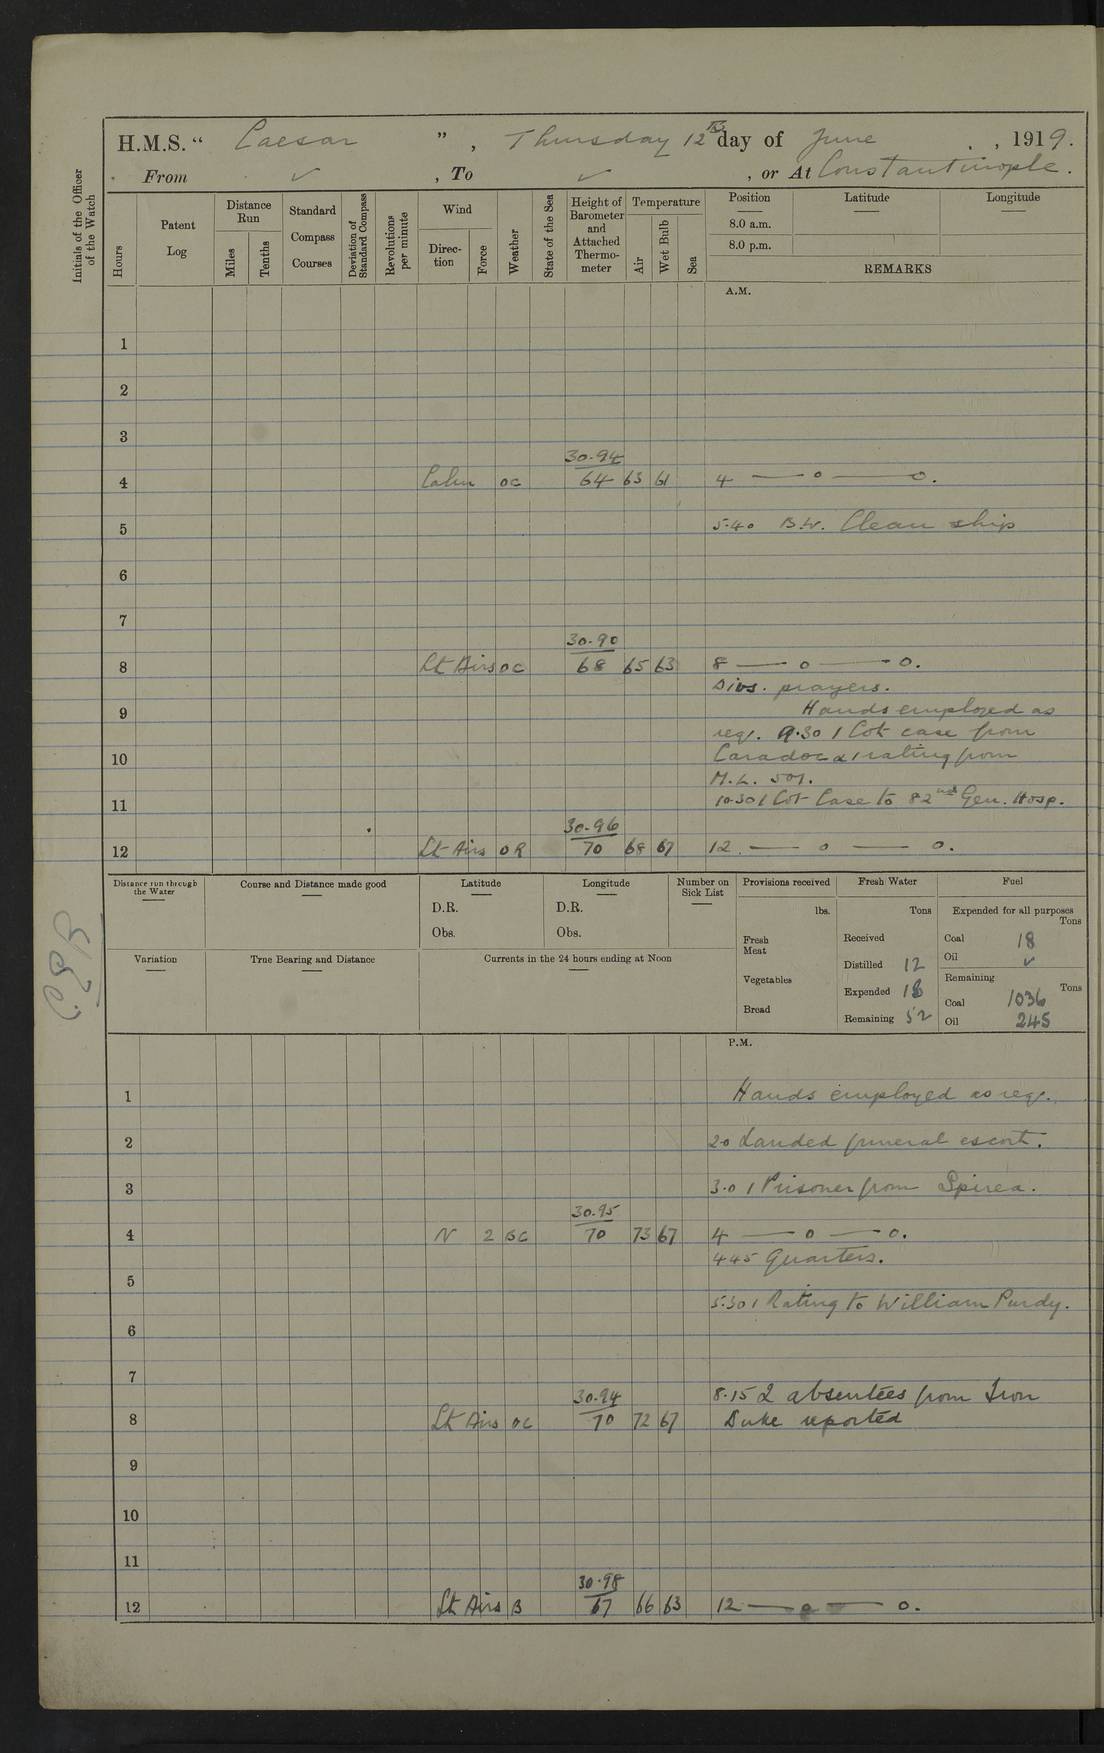 H.M.S. “ Caesar ” , Thursday 12th day of June , , 1919.
From ✓ , To ✓ , or At Constantinople.
Initials of the Officer of the Watch
Hours
Patent Log
Distance Run
Miles
Tenths
Standard Compass Courses
Deviation of Standard Compass
Revolutions per minute
Wind
Direction
Force
Weather
State of the Sea
Height of Barometer and Attached Thermometer
Temperature
Air
Wet Bulb
Sea
Position Latitude Longitude
8.0 a.m.
8.0 p.m.
REMARKS
A.M.
1
2
3
30.94
4 Calm oc 64 63 61 4 — o — o.
5 5.40 B.W. Clean ship
6
7
30.90
8 Lt Airs oc 68 65 63 8 — o — o.
Divs. prayers.
9 Hands employed as
req. 9.30 1 Cot case from
10 Caradoc & 1 rating from
M.L.
11 10.30 1 Cot Case to 82nd Gen. Hosp.
30.96
12 Lt Airs OR 70 68 67 12 — o — o.
Distance run through the Water
Course and Distance made good
Latitude
D.R.
Obs.
Longitude
D.R.
Obs.
Number on Sick List
Provisions received
lbs.
Fresh Meat
Vegetables
Bread
Fresh Water
Tons
Received
Distilled 12
Expended 18
Remaining 52
Fuel
Expended for all purposes
Tons
Coal 18
Oil ✓
Remaining
Tons
Coal 1036
Oil 245
Variation
True Bearing and Distance
Currents in the 24 hours ending at Noon
P.M.
1 Hands employed as req.
2 2.0 Landed funeral escort.
3 3.0 1 Prisoner from Spirea.
30.95
4 N 2 BC 70 73 67 4 — o — o.
4 45 Quarters.
5
5.30 1 Rating to William Purdy.
6
7
30.94 8.15 2 absentees from Iron
8 Lt Airs oc 70 72 67 Duke reported
9
10
11
30.98
12 Lt Airs B 67 66 63 12 — o — o.